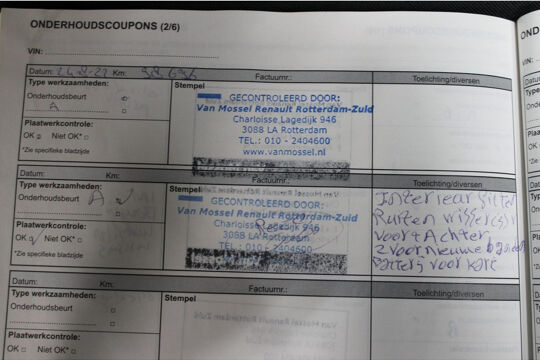 ONDERHOUDSCOUPONS (2/6)
VIN:
Datum: Km: Factuurnr.: Toelichting/diversen
Type werkzaamheden:
Onderhoudsbeurt
A
Plaatwerkcontrole:
OK Niet OK*
*Zie specifieke bladzijde
Stempel
GECONTROLEERD DOOR:
Van Mossel Renault Rotterdam-Zuid
Charloisse Lagedijk 946
3088 LA Rotterdam
TEL.: 010 - 2404600
www.vanmossel.nl
Datum: Km: Factuurnr.: Toelichting/diversen
Type werkzaamheden:
Onderhoudsbeurt A
Plaatwerkcontrole:
OK Niet OK*
*Zie specifieke bladzijde
Stempel
GECONTROLEERD DOOR:
Van Mossel Renault Rotterdam-Zuid
Charloisse Lagedijk 946
3088 LA Rotterdam
TEL.: 010 - 2404600
Interieur filter
Ruiten wissers
voor + Achter
2 voor nieuwe banden
voor
Datum: Km: Factuurnr.: Toelichting/diversen
Type werkzaamheden:
Onderhoudsbeurt
Plaatwerkcontrole:
OK Niet OK*
Stempel